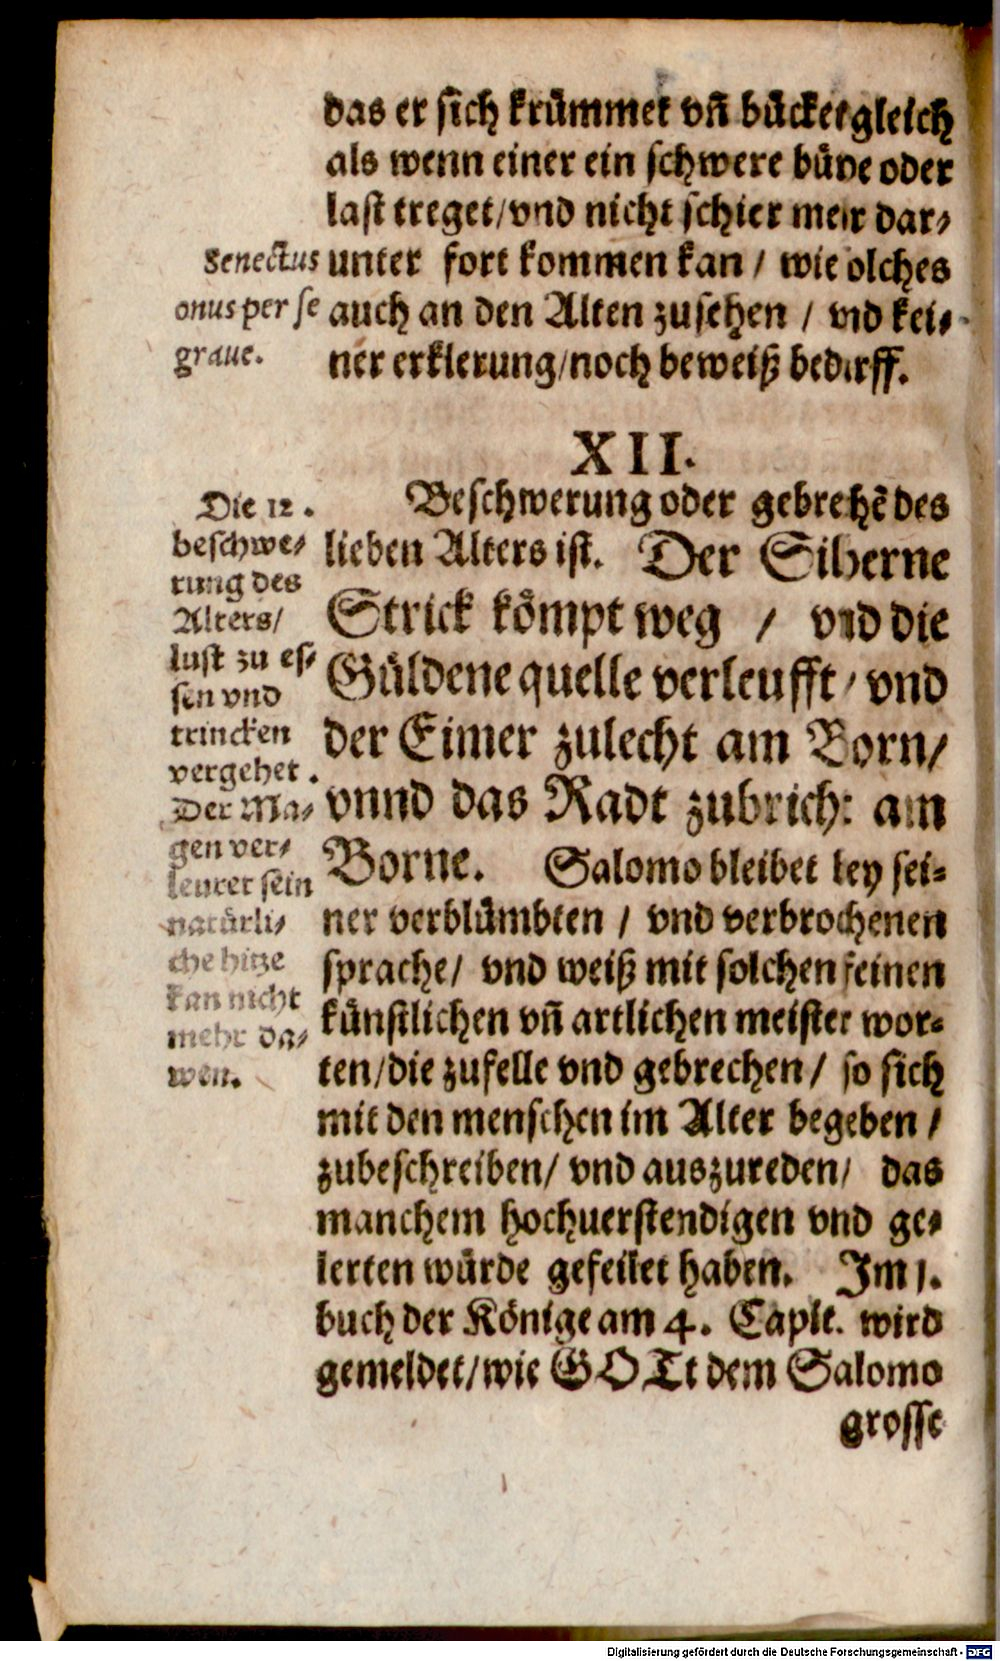 das er sich krümmet vñ bücket gleich
als wenn einer ein schwere bürde oder
last treget/vnd nicht schier mehr dar⸗
unter fort kommen kan / wie solches
auch an den Alten zusehen / vnd kei⸗
ner erklerung/noch beweiß bedarff.
Senectus
onus per se
graue.
XII.
Beschwerung oder gebrehẽ des
lieben Alters ist. Der Silberne
Strick kömpt weg / vnd die
Güldene quelle verleufft/ vnd
der Eimer zulecht am Born/
vnnd das Radt zubricht am
Borne. Salomo bleibet bey sei⸗
ner verblümbten / vnd verbrochenen
sprache/ vnd weiß mit solchen feinen
künstlichen vñ artlichen meister wor⸗
ten/die zufelle vnd gebrechen/ so sich
mit den menschen im Alter begeben /
zubeschreiben/ vnd auszureden/ das
manchem hochuerstendigen vnd ge⸗
lerten würde gefeilet haben. Im 1.
buch der Könige am 4. Capit. wird
gemeldet/wie GOTt dem Salomo
grosse
Die 12.
beschwe⸗
rung des
Alters/
lust zu es⸗
sen vnd
trincken
vergehet.
Der Ma⸗
gen ver⸗
leuret sein
natürli⸗
che hitze
kan nicht
mehr da⸗
wen.
Digitalisierung gefördert durch die Deutsche Forschungsgemeinschaft - DFG